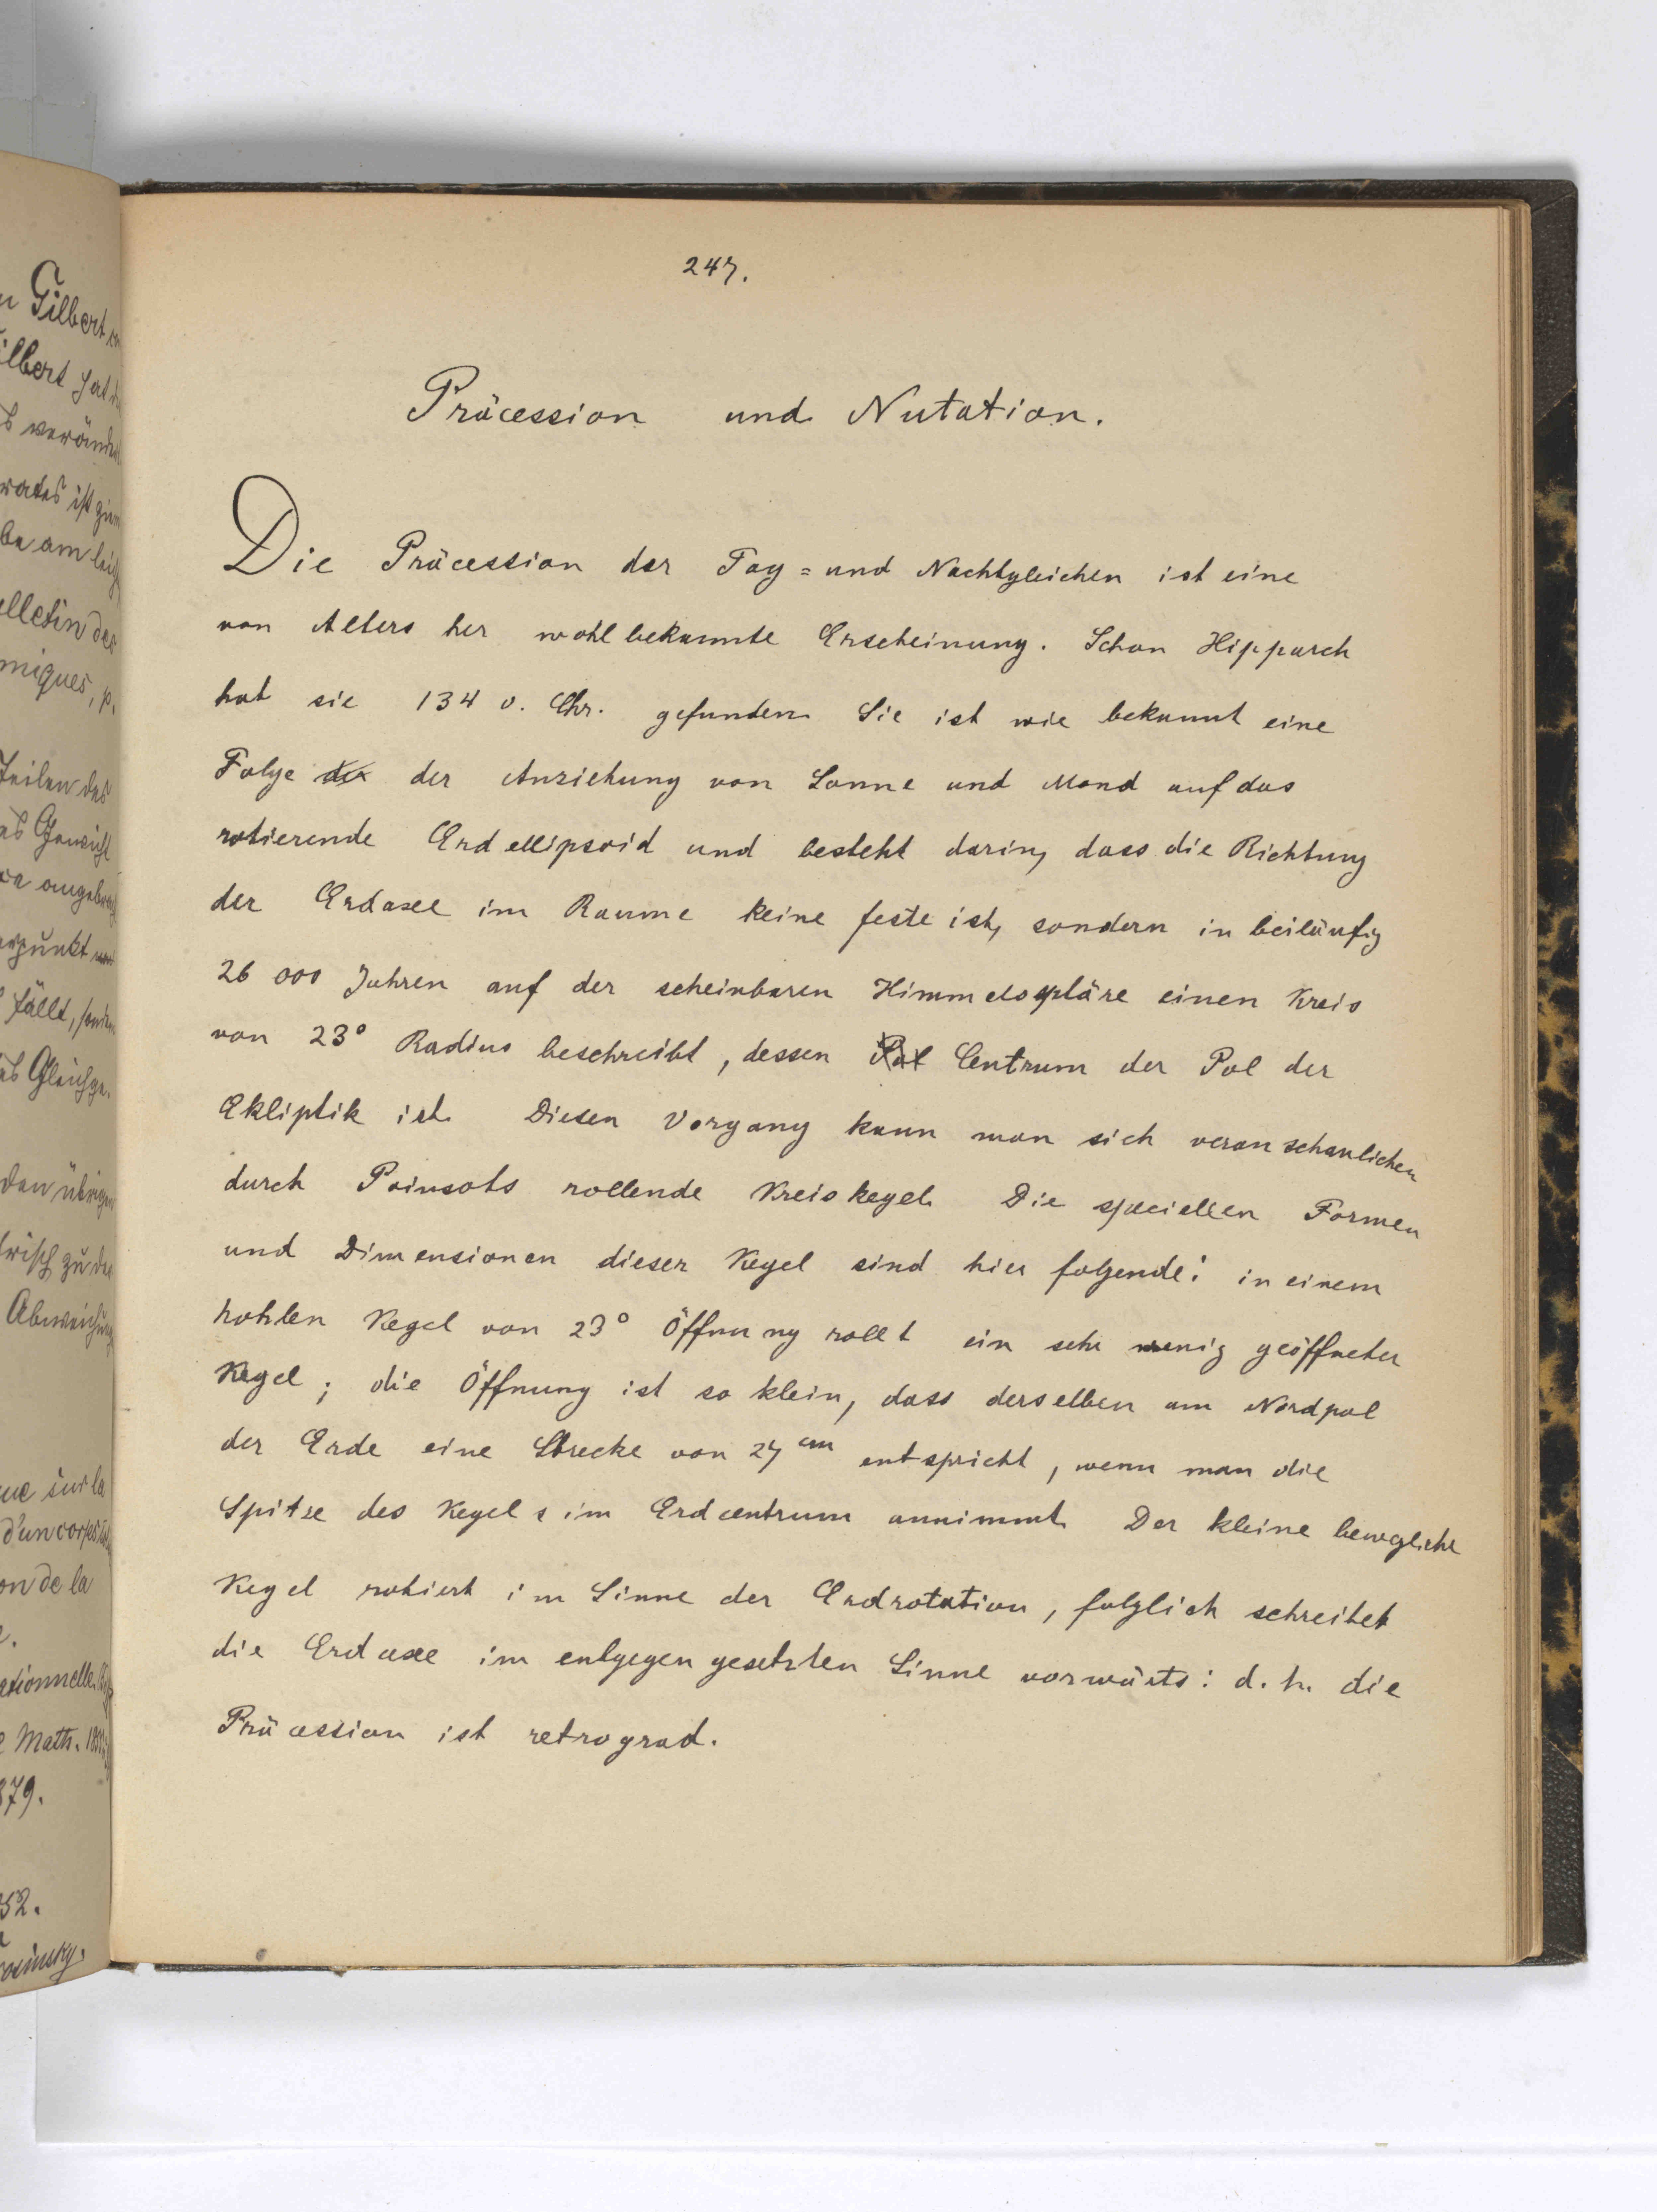 247.
Präcession und Nutation.
Die Präcession der Tag= und Nachtgleichen ist eine
von Alters her wohlbekannte Erscheinung. Schon Hipparch
hat sie 134 v. Chr. gefunden. Sie ist wie bekannt eine
Folge der der Anziehung von Sonne und Mond auf das
rotierende Erdellipsoid und besteht darin, dass die Richtung
der Erdaxe im Raume keine feste ist, sondern in beiläufig
26 000 Jahren auf der scheinbaren Himmelssphäre einen Kreis
von 23° Radius beschreibt, dessen Pol Centrum der Pol der
Ekliptik ist. Diesen Vorgang kann man sich veranschaulichen
durch Poinsots rollende Kreiskegel. Die speciellen Formen
und Dimensionen dieser Kegel sind hier folgende: in einem
hohlen Kegel von 23° Öffnung rollt ein sehr wenig geöffneter
Kegel; die Öffnung ist so klein, dass derselben am Nordpol
der Erde eine Strecke von 27 cm entspricht, wenn man die
Spitze des Kegels im Erdcentrum annimmt. Der kleine bewegliche
Kegel rotiert im Sinne der Erdrotation, folglich schreitet
die Erdaxe im entgegengesetzten Sinne vorwärts: d. h. die
Präcession ist retrograd.
n Gilbert
ilbert hat
elletin des
miques, p.
Teilen des
as Gewicht
fällt,
den übrigen
Abweichung
que sur la
d'un corps
on de la
ationnelle.
Math.
879.
52.